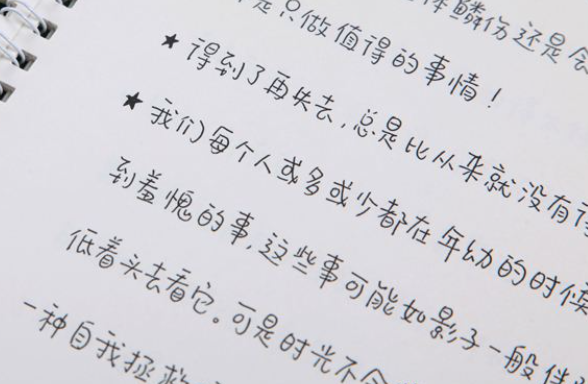 鳞伤还是会
是只做值得的事情!
★得到了再失去,总是比从来就没有
★我们每个人或多或少都在年幼的时候
到羞愧的事,这些事可能如影子一般
低着头去看它。可是时光不会
一种自我拯救